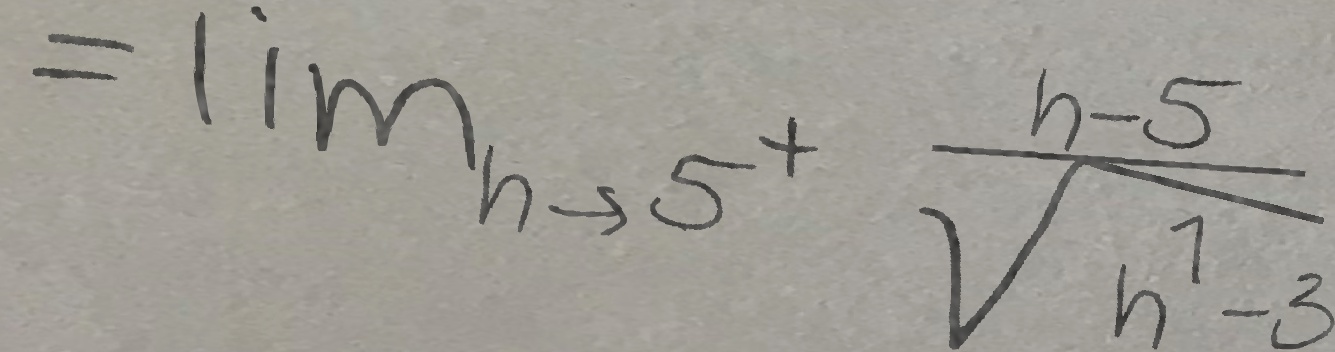 = lim_{h→5^+} \frac{h-5}{\sqrt{h^1-3}}